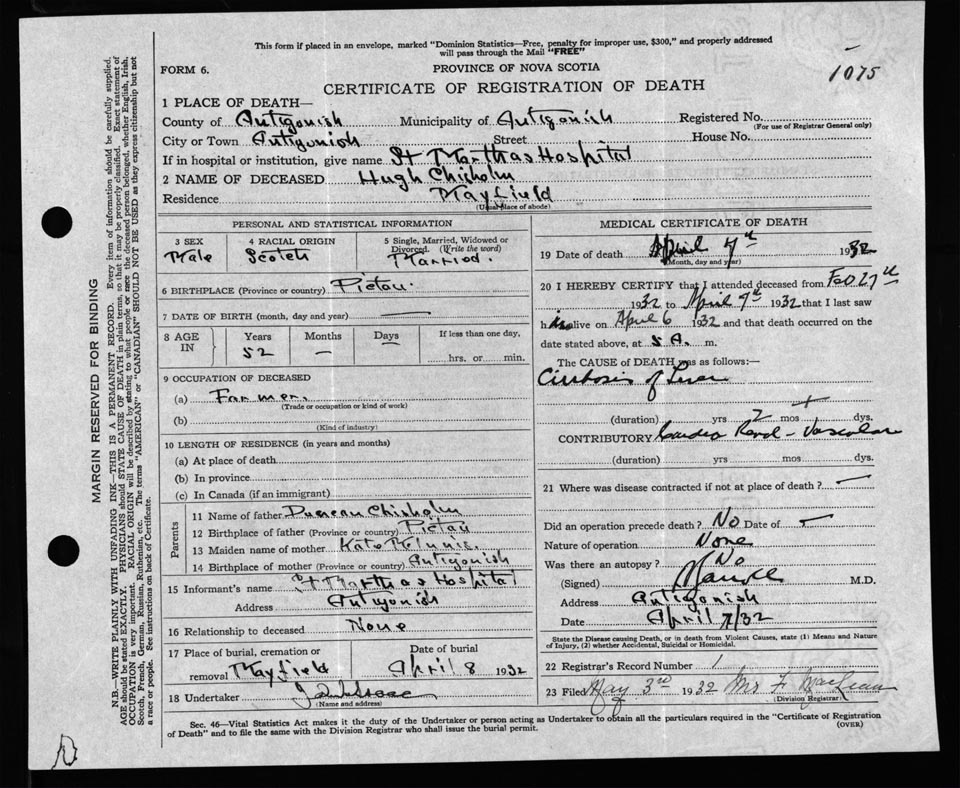 This form if placed in an envelope, marked "Dominion Statistics—Free, penalty for improper use, $300," and properly addressed
will pass through the Mail "FREE"
1075
FORM 6.
PROVINCE OF NOVA SCOTIA
CERTIFICATE OF REGISTRATION OF DEATH
1 PLACE OF DEATH—
County of Antigonish Municipality of Antigonish Registered No.
(For use of Registrar General only)
City or Town Antigonish Street House No.
If in hospital or institution, give name St Marthas Hospital
2 NAME OF DECEASED Hugh Chisholm
Residence Mayfield
(Usual place of abode)
PERSONAL AND STATISTICAL INFORMATION
3 SEX 4 RACIAL ORIGIN 5 Single, Married, Widowed or
Divorced. (Write the word)
Male Scotch Married.
6 BIRTHPLACE (Province or country) Pictou.
7 DATE OF BIRTH (month, day and year) —
8 AGE IN Years Months Days If less than one day,
52 — hrs. or min.
9 OCCUPATION OF DECEASED
(a) Farmer.
(Trade or occupation or kind of work)
(b)
(Kind of industry)
10 LENGTH OF RESIDENCE (in years and months)
(a) At place of death
(b) In province
(c) In Canada (if an immigrant)
Parents
11 Name of father Duncan Chisholm
12 Birthplace of father (Province or country) Pictou
13 Maiden name of mother Kate McInnis.
14 Birthplace of mother (Province or country) Antigonish
15 Informant's name St Marthas Hospital
Address Antigonish
16 Relationship to deceased None
17 Place of burial, cremation or Date of burial
removal Mayfield April 8 1932
18 Undertaker
(Name and address)
MEDICAL CERTIFICATE OF DEATH
19 Date of death April 7th 1932
(Month, day and year)
20 I HEREBY CERTIFY that I attended deceased from Feb 27th
1932 to April 7th 1932 that I last saw
him alive on April 6 1932 and that death occurred on the
date stated above, at 5 A. m.
The CAUSE of DEATH was as follows:—
Cirrhosis of Liver
(duration) yrs 2 mos + dys.
CONTRIBUTORY Cardio Renal-Vascular
(duration) yrs mos dys.
21 Where was disease contracted if not at place of death? —
Did an operation precede death? No Date of —
Nature of operation None
Was there an autopsy? No
(Signed) M.D.
Address Antigonish
Date April 7/32
State the Disease causing Death, or in death from Violent Causes, state (1) Means and Nature
of Injury, (2) whether Accidental, Suicidal or Homicidal.
22 Registrar's Record Number 1
23 Filed May 3rd 1932 Mrs F MacLean
(Division Registrar)
Sec. 46—Vital Statistics Act makes it the duty of the Undertaker or person acting as Undertaker to obtain all the particulars required in the "Certificate of Registration
of Death" and to file the same with the Division Registrar who shall issue the burial permit. (OVER)
MARGIN RESERVED FOR BINDING
N.B.—WRITE PLAINLY WITH UNFADING INK—THIS IS A PERMANENT RECORD. Every item of information should be carefully supplied.
AGE should be stated EXACTLY. PHYSICIANS should STATE CAUSE OF DEATH in plain terms, so that it may be properly classified. Exact statement of
OCCUPATION is very important. RACIAL ORIGIN will be described by stating to what people or race the deceased person belonged, whether English, Irish,
Scotch, French, German, Russian, Ruthenian, etc. The terms "AMERICAN" or "CANADIAN" SHOULD NOT BE USED as they express citizenship but not
a race or people. See instructions on back of Certificate.